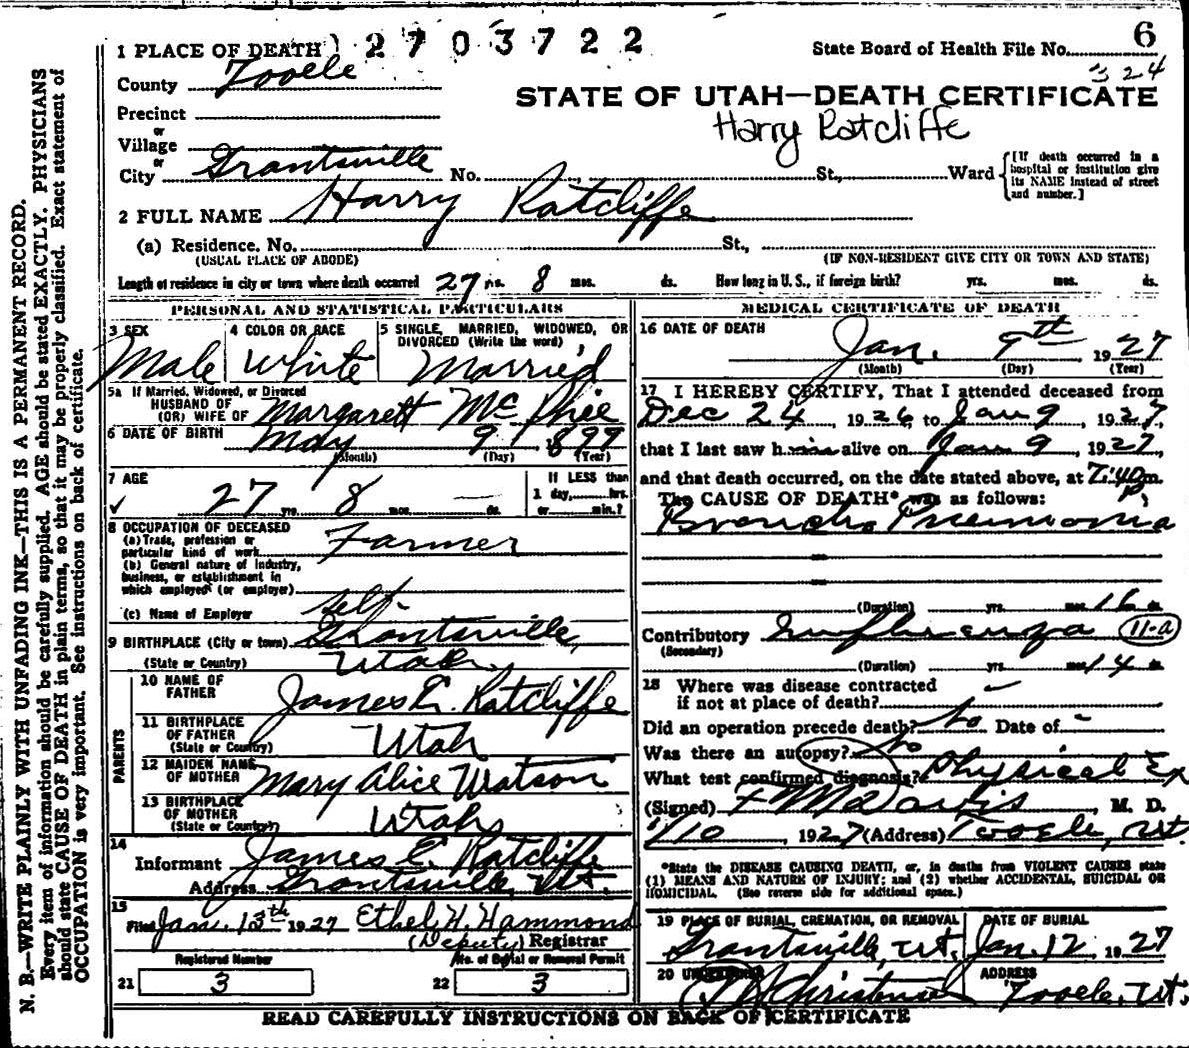 1 PLACE OF DEATH) 2703722
State Board of Health File No. 6
324
County Tooele
STATE OF UTAH—DEATH CERTIFICATE
Harry Ratcliffe
Precinct
or
Village
or
City Grantsville No. St., Ward
[If death occurred in a hospital or institution give its NAME instead of street and number.]
2 FULL NAME Harry Ratcliffe
(a) Residence, No. St.,
(USUAL PLACE OF ABODE) (IF NON-RESIDENT GIVE CITY OR TOWN AND STATE)
Length of residence in city or town where death occurred 27 yrs. 8 mos. ds. How long in U. S., if foreign birth? yrs. mos. ds.
PERSONAL AND STATISTICAL PARTICULARS
3 SEX Male
4 COLOR OR RACE White
5 SINGLE, MARRIED, WIDOWED, OR DIVORCED (Write the word) Married
5a If Married, Widowed, or Divorced
HUSBAND OF
(OR) WIFE OF Margarett McPhie
6 DATE OF BIRTH May 9 1899
(Month) (Day) (Year)
7 AGE 27 yrs. 8 mos. — ds.
If LESS than
1 day, hrs.
or min.?
8 OCCUPATION OF DECEASED
(a) Trade, profession or
particular kind of work Farmer
(b) General nature of industry,
business, or establishment in
which employed (or employer)
(c) Name of Employer Self-
9 BIRTHPLACE (City or town) Grantsville,
(State or Country) Utah
PARENTS
10 NAME OF
FATHER James E. Ratcliffe
11 BIRTHPLACE
OF FATHER
(State or Country) Utah
12 MAIDEN NAME
OF MOTHER Mary Alice Watson
13 BIRTHPLACE
OF MOTHER
(State or Country) Utah
14
Informant James E. Ratcliffe
Address Grantsville, Ut.
15
Filed Jan. 13th 1927 Ethel H. Hammond
(Deputy) Registrar
Registered Number No. of Burial or Removal Permit
21 3 22 3
MEDICAL CERTIFICATE OF DEATH
16 DATE OF DEATH
Jan. 9th, 1927
(Month) (Day) (Year)
17 I HEREBY CERTIFY, That I attended deceased from
Dec 24, 1926, to Jan 9, 1927,
that I last saw him alive on Jan 9, 1927,
and that death occurred, on the date stated above, at 7:40 P m.
The CAUSE OF DEATH* was as follows:
Broncho Pneumonia
(Duration) yrs. mos. 16 ds.
Contributory Influenza 11-a
(Secondary)
(Duration) yrs. mos. 14 ds.
18 Where was disease contracted
if not at place of death? —
Did an operation precede death? No Date of -
Was there an autopsy? No
What test confirmed diagnosis? Physical Ex
(Signed) Davis, M. D.
1/10 1927 (Address) Tooele, Ut.
*State the DISEASE CAUSING DEATH, or, in deaths from VIOLENT CAUSES state
(1) MEANS AND NATURE OF INJURY; and (2) whether ACCIDENTAL, SUICIDAL OR
HOMICIDAL. (See reverse side for additional space.)
19 PLACE OF BURIAL, CREMATION, OR REMOVAL DATE OF BURIAL
Grantsville, Ut. Jan. 12, 1927
20 UNDERTAKER ADDRESS
Christensen Tooele, Ut.
READ CAREFULLY INSTRUCTIONS ON BACK OF CERTIFICATE
N. B.—WRITE PLAINLY WITH UNFADING INK—THIS IS A PERMANENT RECORD.
Every item of information should be carefully supplied. AGE should be stated EXACTLY. PHYSICIANS
should state CAUSE OF DEATH in plain terms, so that it may be properly classified. Exact statement of
OCCUPATION is very important. See instructions on back of certificate.